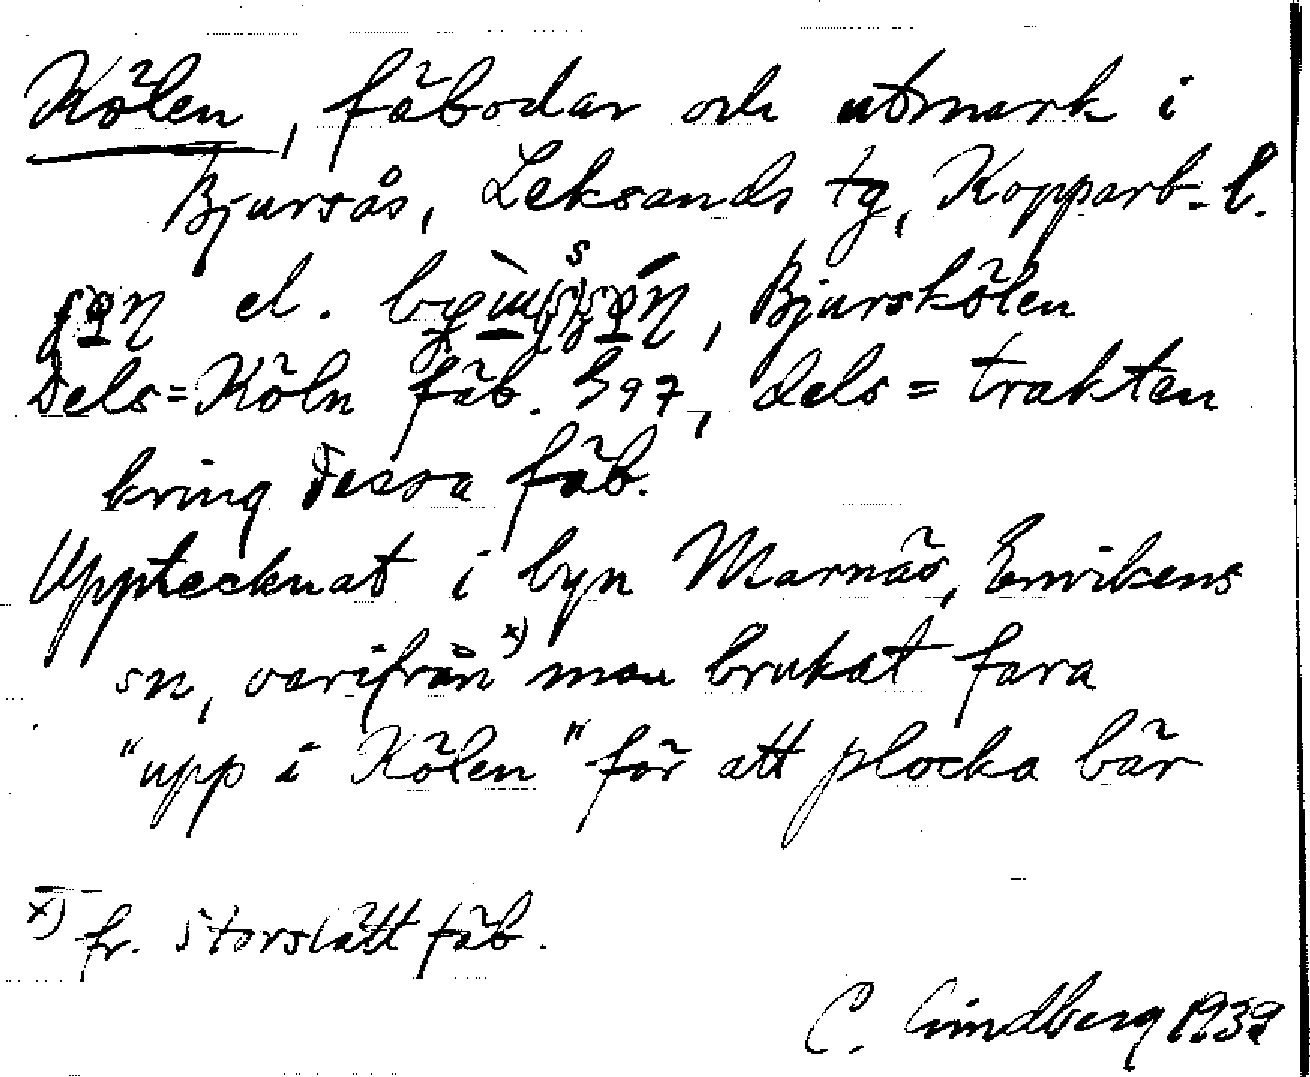 Kölen, fäbodar och utmark i
Bjursås, Leksands tg, Kopparb. l.
el. , Bjurskölen
Dels = Köln fäb. 597, dels = trakten
kring dessa fäb.
Upptecknat i byn Marnäs, Envikens
sn, varifrån x) man brukat fara
"upp i Kölen" för att plocka bär
x) fr. Storslätt fäb.
C. Lindberg 1939